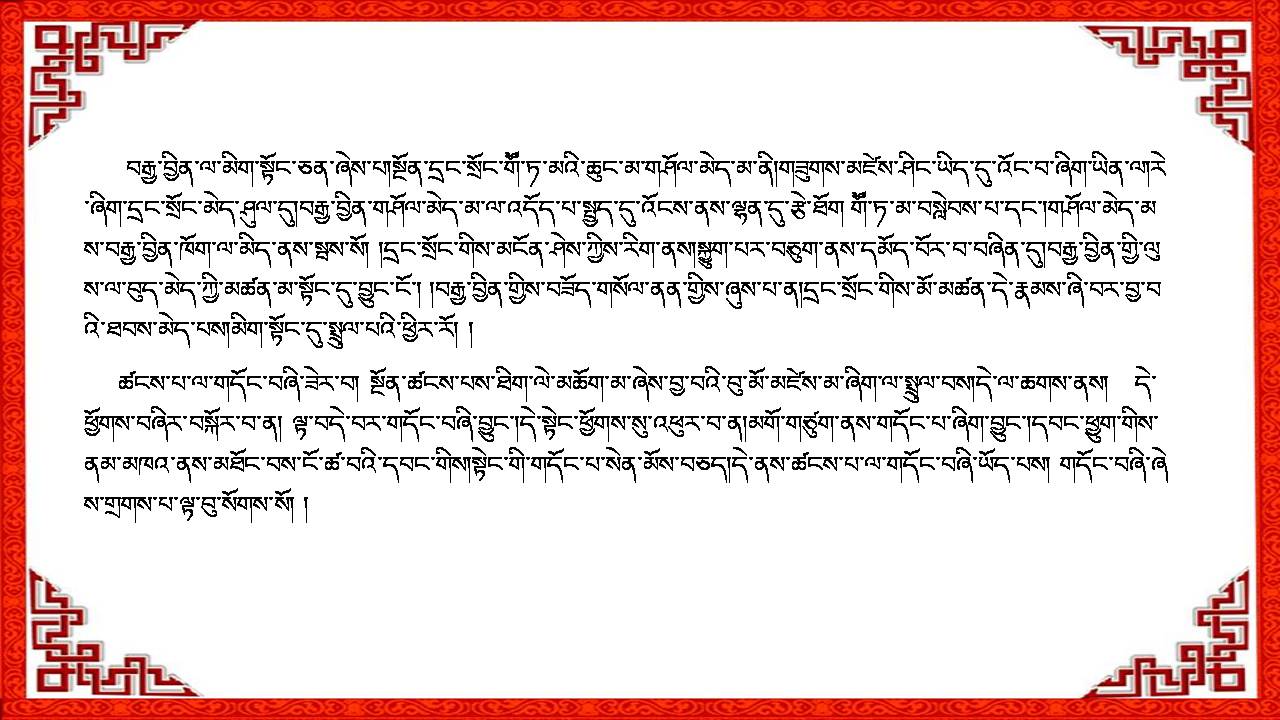 བརྒྱ་བྱིན་ལ་མིག་སྟོང་ཅན་ཞེས་པ།སྔོན་དྲང་སྲོང་གཽ་ཏ་མའི་ཆུང་མ་གཤོལ་མེད་མ་ནི།གཟུགས་མཛེས་ཤིང་ཡིད་དུ་འོང་བ་ཞིག་ཡིན་ལ།རེ
་ཞིག་དྲང་སྲོང་མེད་ཤུལ་དུ།བརྒྱ་བྱིན་གཤོལ་མེད་མ་ལ་འདོད་པ་སྤྱད་དུ་འོངས་ནས་ལྷན་དུ་རྩེ་ཐོག གཽ་ཏ་མ་བསླེབས་པ་དང་།གཤོལ་མེད་མ
ས་བརྒྱ་བྱིན་ཁོག་ལ་མིད་ནས་སྦས་སོ། །དྲང་སྲོང་གིས་མངོན་ཤེས་ཀྱིས་རིག་ནས།སྐྱུག་པར་བཅུག་ནས་དམོད་བོར་བ་བཞིན་དུ།བརྒྱ་བྱིན་གྱི་ལུ
ས་ལ་བུད་མེད་ཀྱི་མཚན་མ་སྟོང་དུ་བྱུང་ངོ་། །བརྒྱ་བྱིན་གྱིས་བཟོད་གསོལ་ནན་གྱིས་ཞུས་པ་ན།དྲང་སྲོང་གིས་མོ་མཚན་དེ་རྣམས་ཞི་བར་བྱ་བ
འི་ཐབས་མེད་པས།མིག་སྟོང་དུ་སྤྲུལ་པའི་ཕྱིར་རོ། །
ཚངས་པ་ལ་གདོང་བཞི་ཟེར་བ། སྔོན་ཚངས་པས་ཐིག་ལེ་མཆོག་མ་ཞེས་བྱ་བའི་བུ་མོ་མཛེས་མ་ཞིག་ལ་སྤྲུལ་བས།དེ་ལ་ཆགས་ནས། དེ་
ཕྱོགས་བཞིར་བསྐོར་བ་ན། ལྟ་བདེ་བར་གདོང་བཞི་བྱུང་།དེ་སྟེང་ཕྱོགས་སུ་འཕུར་བ་ན།མགོ་གཙུག་ནས་གདོང་པ་ཞིག་བྱུང་།དབང་ཕྱུག་གིས་
ནམ་མཁའ་ནས་མཐོང་བས་ངོ་ཚ་བའི་དབང་གིས།སྟེང་གི་གདོང་པ་སེན་མོས་བཅད།དེ་ནས་ཚངས་པ་ལ་གདོང་བཞི་ཡོད་པས། གདོང་བཞི་ཞེ
ས་གྲགས་པ་ལྟ་བུ་སོགས་སོ། །